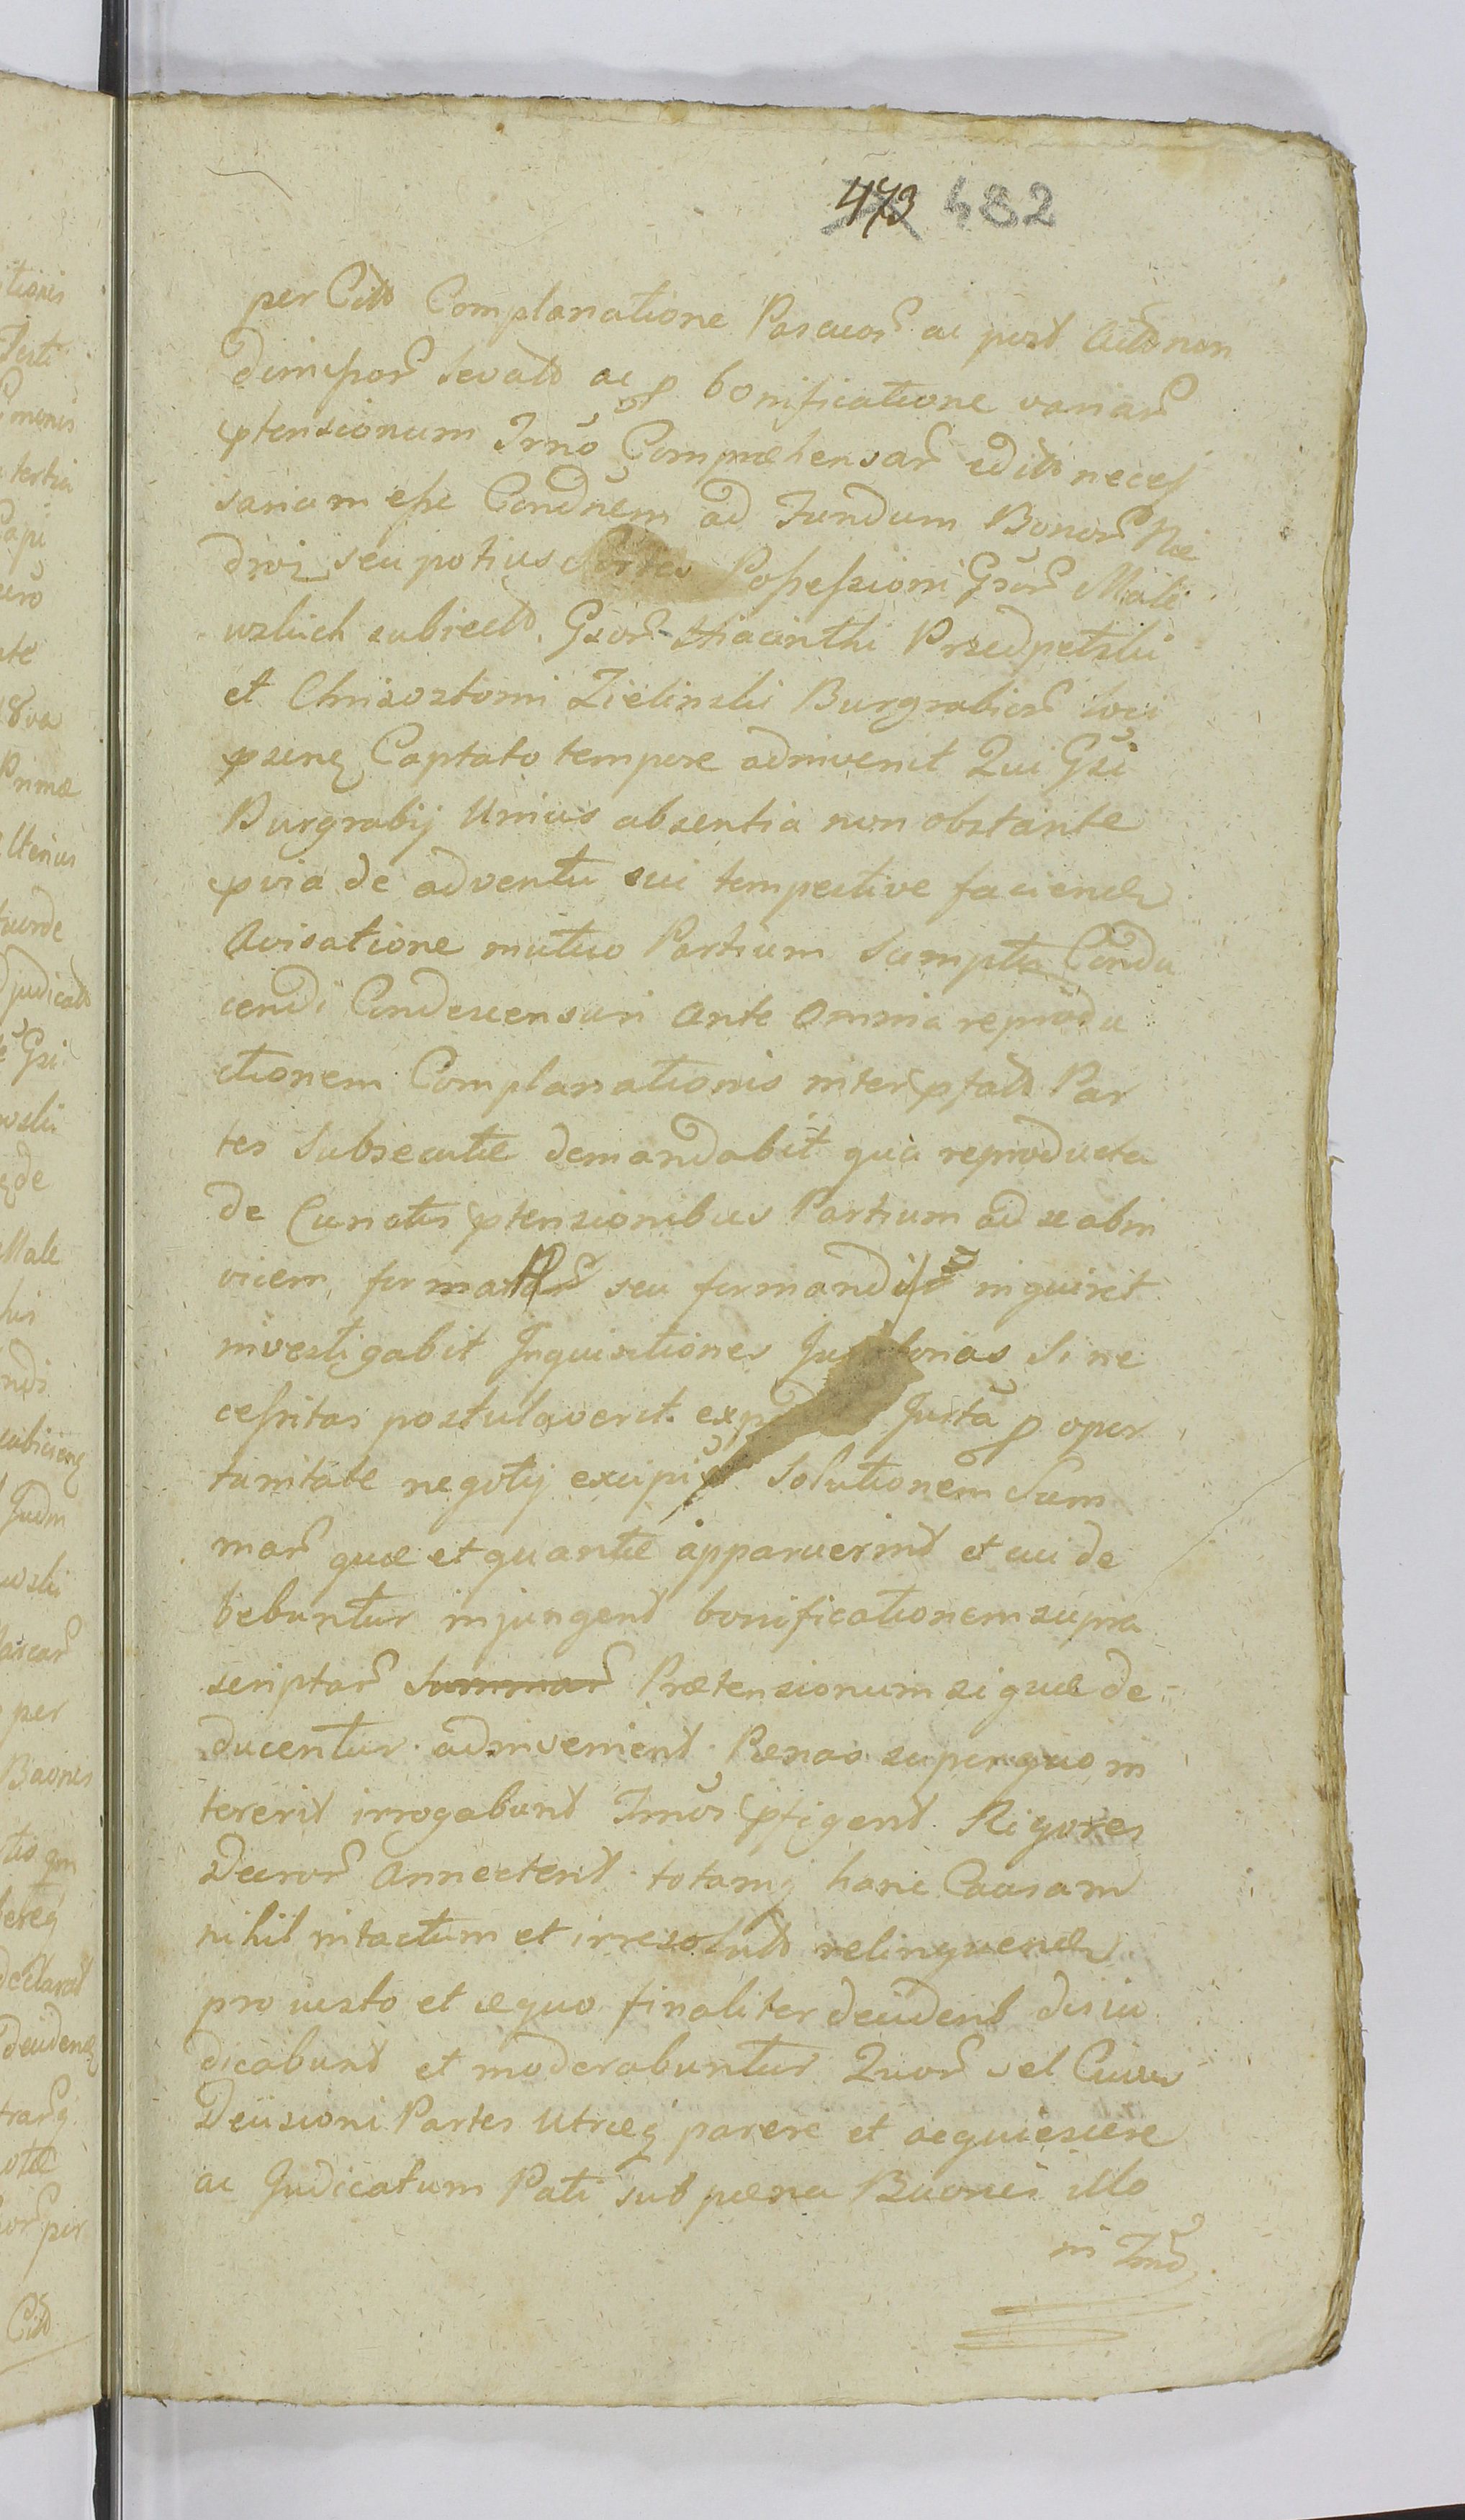 473 482
per Citt Complanatione Pascuor ac post Actt non
dimissor levatt ac p bonificatione variar
ptensionum Trno Compræhensar editt necess
sariam esse Condnem ad Fundum Bonor
seu potius Sortes Possessioni Gsor Male
wskich subiectt. Gsor Hiacinthi Przedpełski
et Chrisostomi Zielinski Burgrabior loci
psenq Captato tempore adinvenit Qui Gsi
Burgrabij Unius absentia non obstante
pvia de adventu sui tempestive facienda
Avisatione mutuo Partium Sumptu Condu
cendi Condescensuri Ante Omnia reprodu
ctionem Complanationis inter pfatt Par
tes Subsecutæ demandabit qua reproducta
de Cunctis ptensionibus Partium ad se abin
vicem formatar seu formandis inquiret
investigabit Inquisitiones si ne
cessitas postulaverit. Juxta p opor
tunitate negotij excipi Solutionem Sum
mar quæ et quantæ apparuerint et cui de
bebuntur injungent bonificationem supra
scriptar Summar Prætensionum si quæ de
ducentur. adinvenient. Pænas super quo in
tererit irrogabunt Trnos pfigent. Rigores
Decror Annectent. totamq hanc Causam
nihil intactum et irresolutt relinquenda
pro iusto et æquo finaliter decident diiu
dicabunt et moderabuntur Quor vel Cuius
Decisioni Partes Utræq parere et acquiescere
ac Judicatum Pati sub pæna Baonis illo
in Trno